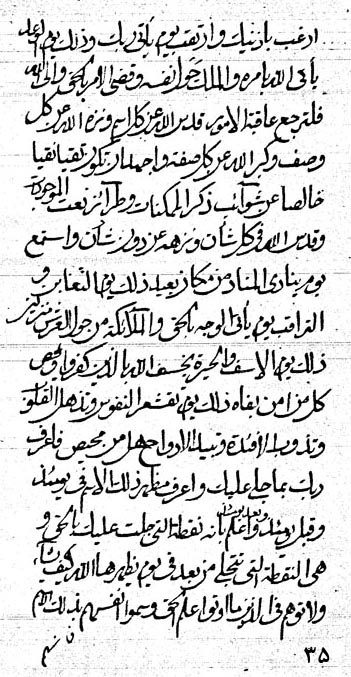 ارغب باذنيك وارتقب يوم يأتي ربك وذلك يوم
يأتي الله بامره والملك حول نفسه وقضى الامر بالحق والى الله
فلترجع عاقبة الامور قدس الله عن كل اسم ونزه الله عن كل
وصف وكبر الله عن كل صفة واجهد ان تكون تقيا نقيا
خالصا عن شوائب ذكر الممكنات وطرائز نعت الموجودات
وقدس الله في كل شأن ونزهه عن دون شأن واستمع
يوم ينادى المناد من مكان بعيد ذلك يوم التغابن و
التراقب يوم يأتي الوجه بالحق والملائكة من حول العرش
ذلك يوم الاسف والحيرة يخسف الله بالذين كفروا ويمحص
كل من امن بلقاه ذلك يوم تقشعر النفوس وتذهل القلوب
وتذوب الافئدة وتبيد الارواح هل من محيص فاعرف
ربك بما تجلى عليك واعرف مظهر ذلك الاسم في يومئذ
وقبل يومئذ وبعد يومئذ واعلم بانه نقطة التي تجلت عليك بالحق و
هي النقطة التي تتجلى من بعد في يوم يظهرها الله كيف يشاء
ولا توهم في الذين ما اوتوا علم الحق وسموا انفسهم بذلك الاسم
٣٥